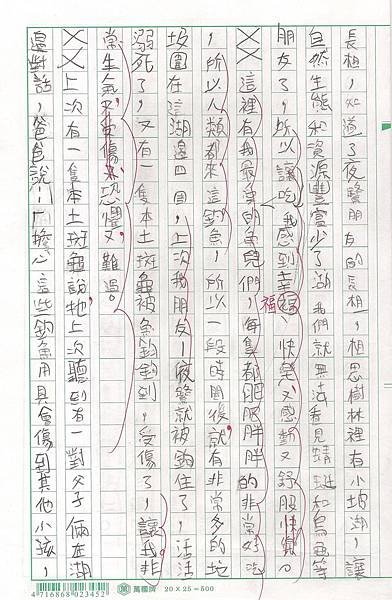 長相，知道了夜鷺朋友的長相，相思樹林裡有小坡湖，讓
自然生態和資源豐富少了湖我們就無法看見蜻蜓和烏龜等
朋友了，所以讓我感到幸福、快樂又感動又舒服快樂。
福
這裡有我最多的魚兒們，每隻都肥肥胖胖的非常好吃
，所以人類都來這釣魚，所以一段時間後就有非常多的
垃圾在這湖邊四周，上次我朋友—夜鷺就被鉤住了，活活
溺死了，又有一隻本土斑龜被魚鉤鉤到，受傷了，讓我非
常生氣又難過。
上次有一隻本土斑龜說牠上次聽到有一對父子倆在湖
邊對話，爸爸說：「擔心這些釣魚用具會傷到其他小孩，
4 716868 023452
萬國牌 20×25=500